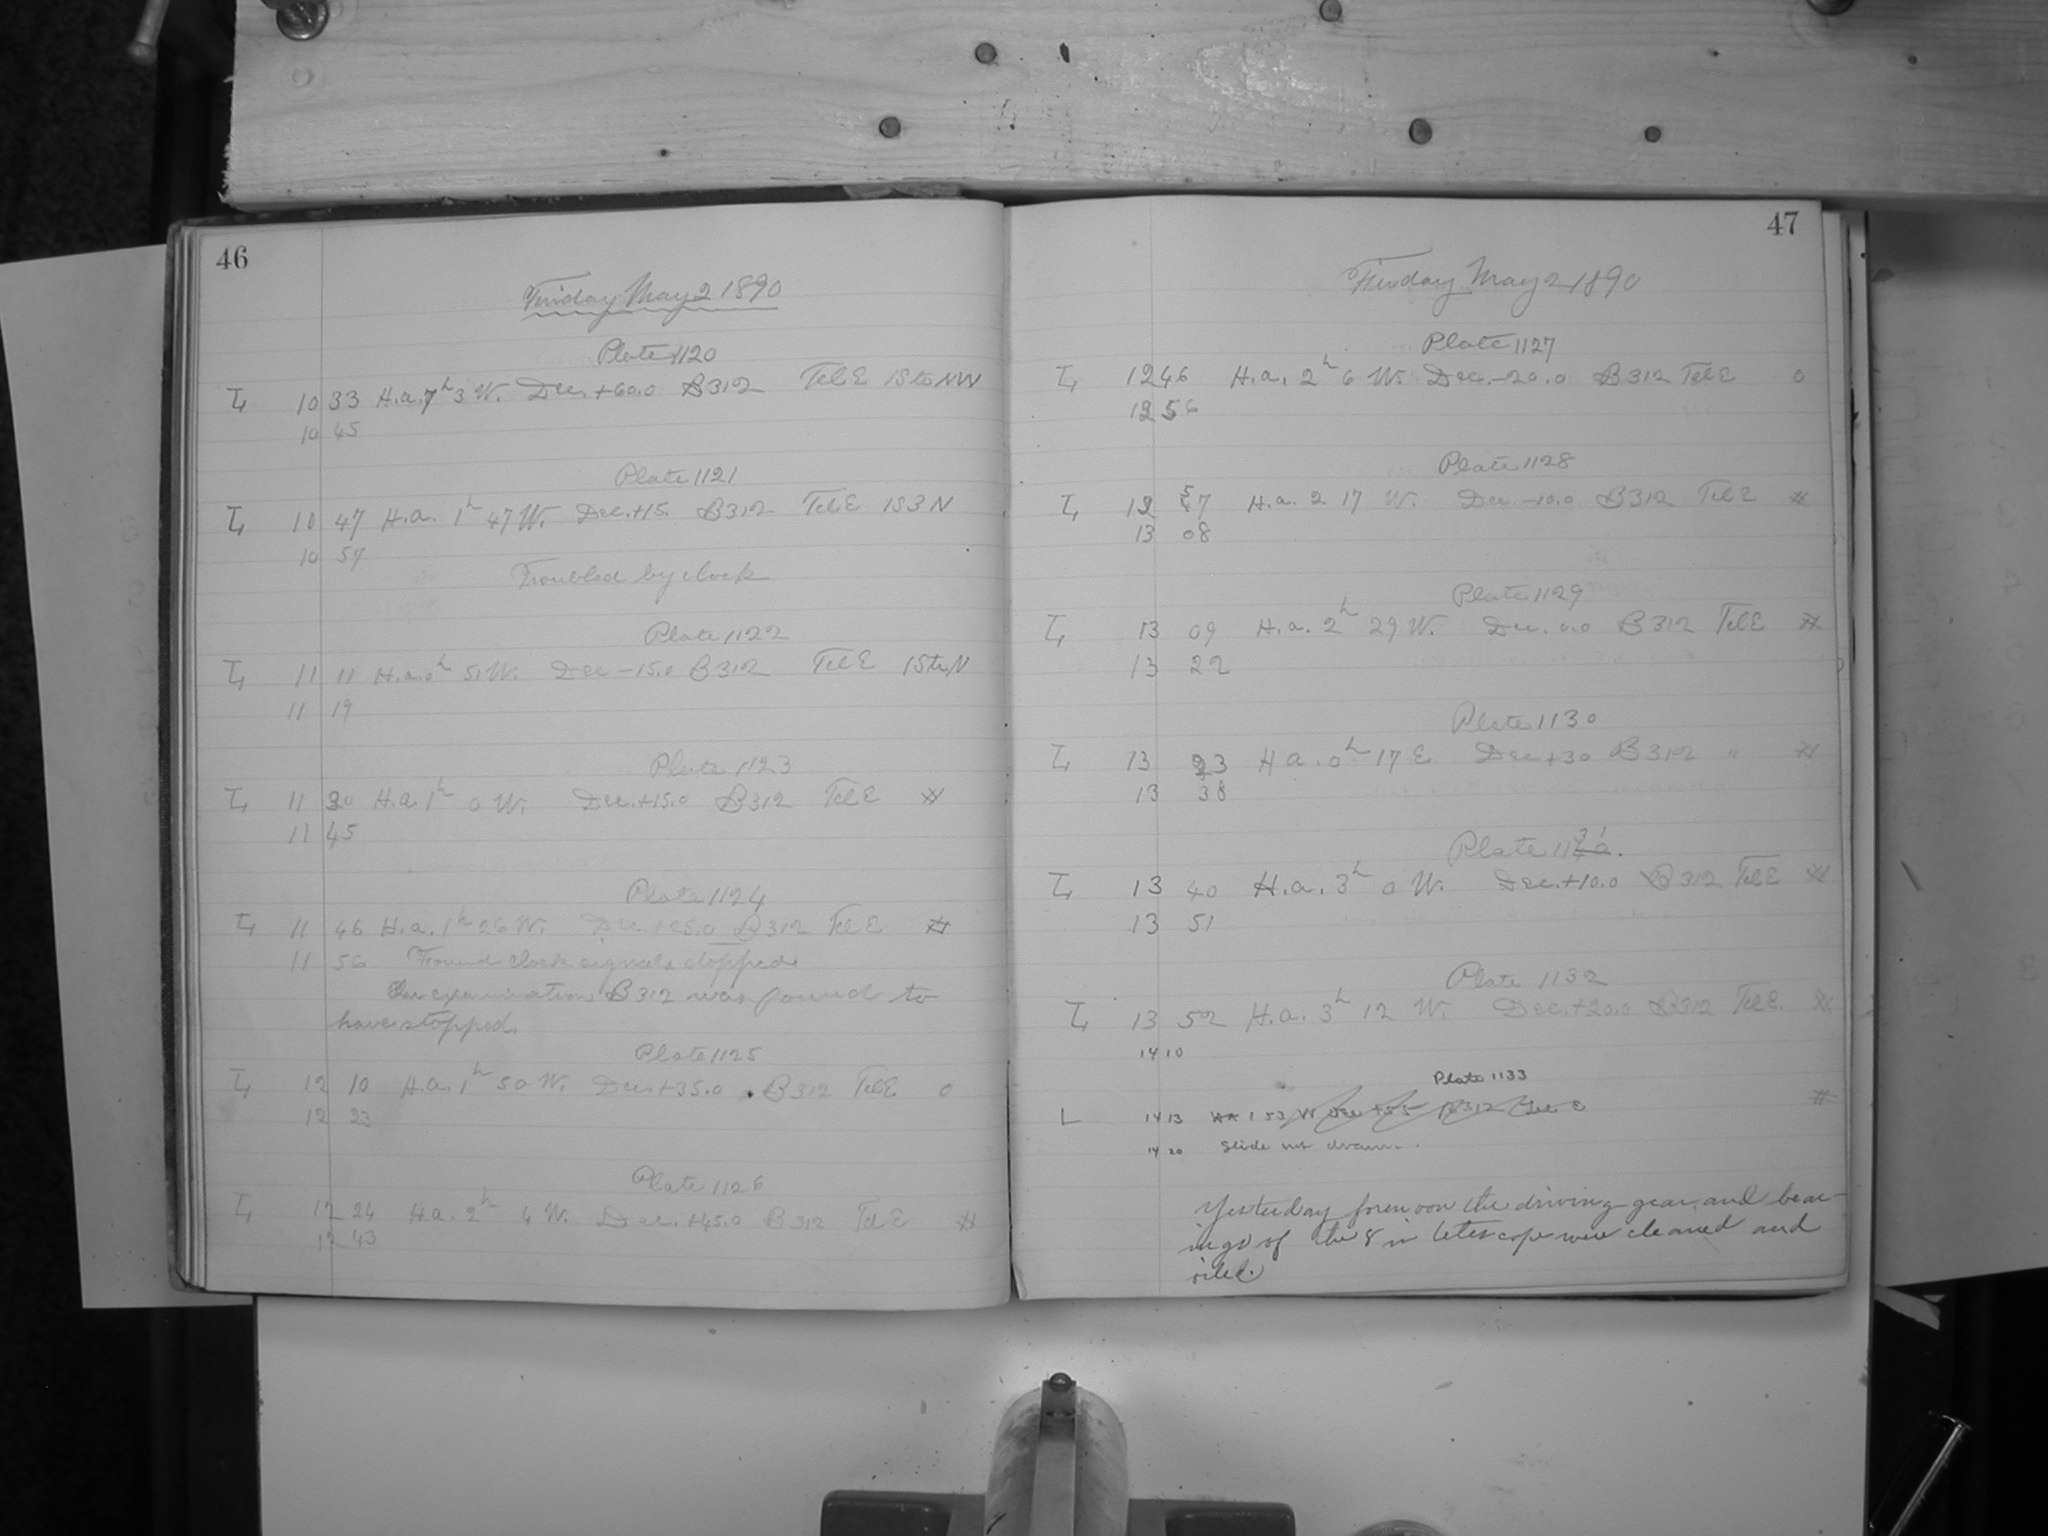 46
Friday May 2 1890
Plate 1120
L 10 33 H.a. 7h 3 W. Dec. +60.0 B312 Tel E 1StoNW
10 45
Plate 1121
L 10 47 H.a. 1h 47 W. Dec. +15. B312 Tel E 1S3N
10 57
Troubled by clock
Plate 1122
L 11 11 H.a. 0h 51 W. Dec -15.0 B312 Tel E 1StoN
11 19
Plate 1123
L 11 30 H.a. 1h 0 W. Dec. +15.0 B312 Tel E
11 45
Plate 1124
L 11 46 H.a. 1h 26 W. Dec. +25.0 B312 Tel E
11 56 Found clock signals stopped.
On examination B312 was found to
have stopped.
Plate 1125
L 12 10 H.a. 1h 50 W. Dec. +35.0 B312 Tel E 0
12 23
Plate 1126
L 12 24 H.a. 2h 4 W. Dec. +45.0 B312 Tel E
12 43
47
Friday May 2 1890
Plate 1127
L 12 46 H.a. 2h 6 W. Dec. -20.0 B312 Tel E 0
12 56
Plate 1128
L 12 57 H.a. 2 17 W. Dec. -10.0 B312 Tel E
13 08
Plate 1129
L 13 09 H.a. 2h 29 W. Dec. 0.0 B312 Tel E
13 22
Plate 1130
L 13 23 H a. 0h 17 E Dec +30 B312 "
13 38
Plate 1131
L 13 40 H.a. 3h 0 W. Dec. +10.0 B312 Tel E
13 51
Plate 1132
L 13 52 H.a. 3h 12 W. Dec. +20.0 B312 Tel E.
14 10
Plate 1133
L 14 13 HA 1 53 W Dec +55 B312 Tel E
14 20 Slide not drawn.
Yesterday forenoon the driving gear and bear-
ings of the 8 in telescope were cleaned and
oiled.